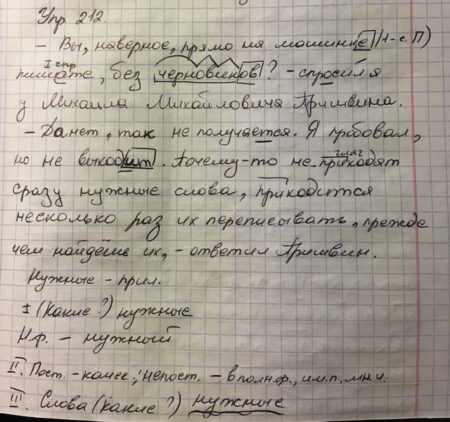 Упр 212
- Вы, наверное, прямо на машинке (1-с. П)
I спр
пишете, без черновиков? - спросил я
у Михаила Михайловича Пришвина.
- Да нет, так не получается. Я пробовал,
но не выходит. Почему-то не приходят
глаг
сразу нужные слова, приходится
несколько раз их переписывать, прежде
чем найдёшь их, - ответил Пришвин.
Нужные - прил.
I (Какие?) нужные
Н.ф. - нужный
II. Пост. - качес.; Непост. - в полн.ф., им.п., мн.ч.
III. Слова (какие?) нужные